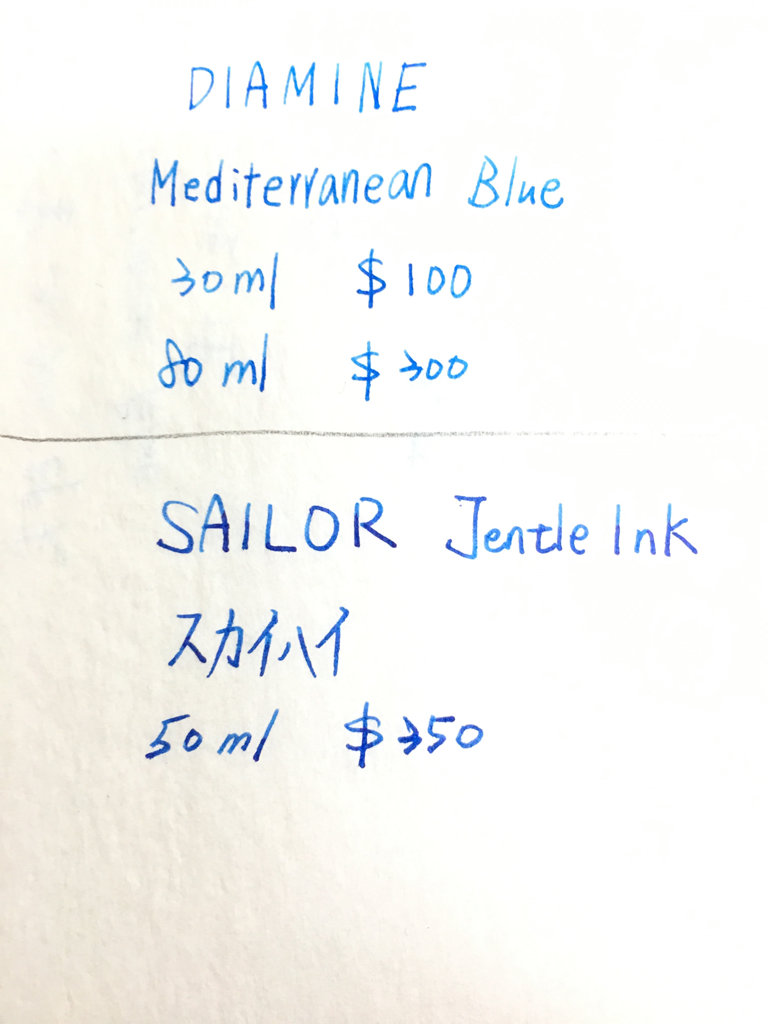 DIAMINE
Mediterranean Blue
30ml $100
80ml $300
SAILOR Jentle Ink
スカイハイ
50ml $350